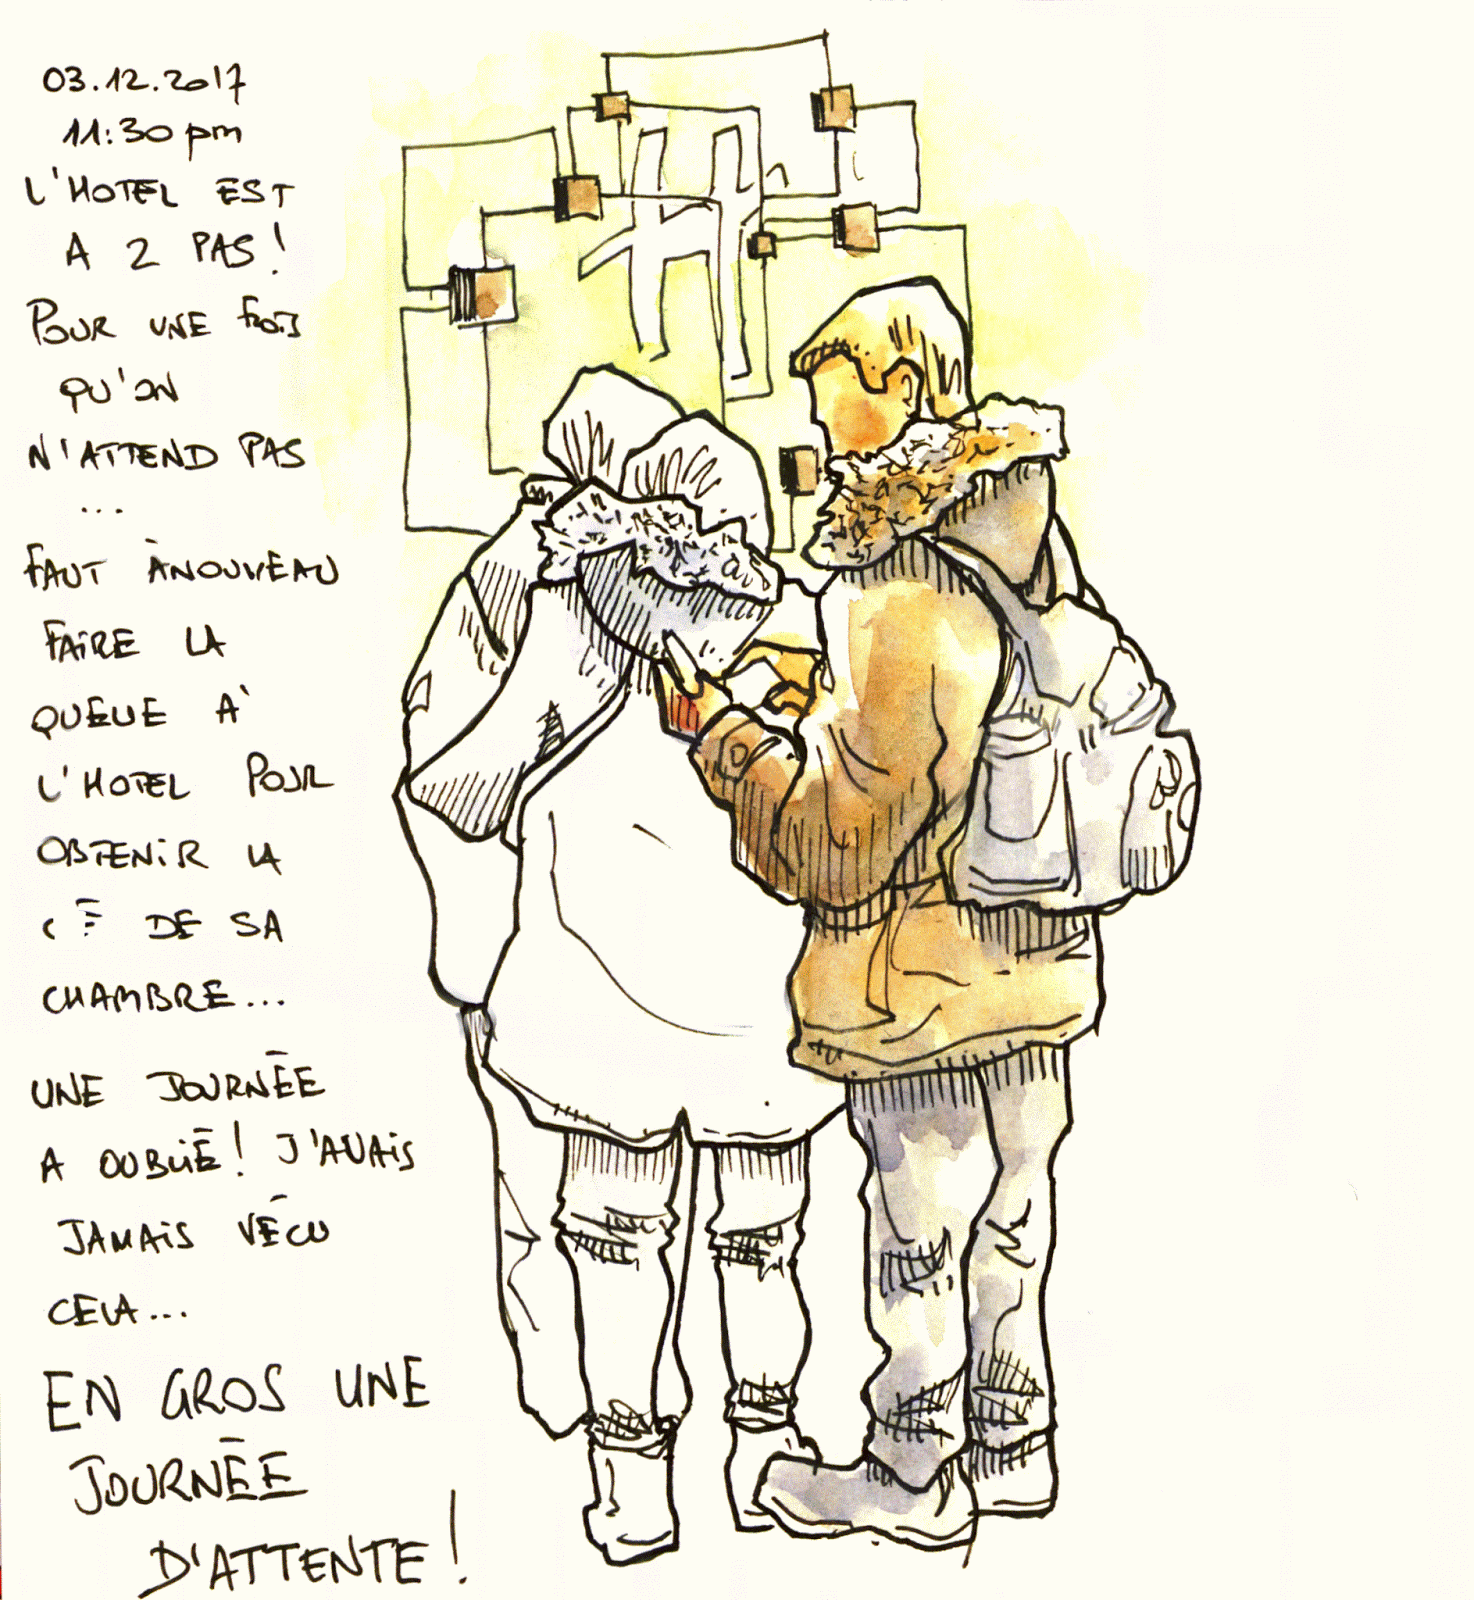 03.12.2017
11:30 pm
L'HOTEL EST
A 2 PAS!
POUR UNE FOIS
QU'ON
N'ATTEND PAS
...
FAUT À NOUVEAU
FAIRE LA
QUEUE À
L'HOTEL POUR
OBTENIR LA
DE SA
CHAMBRE...
UNE JOURNÉE
A OUBLIÉ! J'AVAIS
JAMAIS VÉCU
CELA...
EN GROS UNE
JOURNÉE
D'ATTENTE!